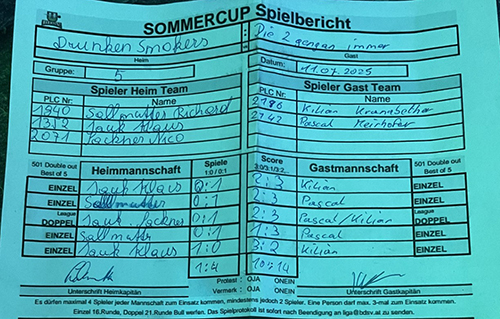 SOMMERCUP Spielbericht
Drunken Smokers : Die 2 gengan immer
Heim Gast
Gruppe: 5 Datum: 11.07.2025
Spieler Heim Team Spieler Gast Team
PLC Nr. Name PLC Nr. Name
1940 Sallmutter Richard 2186 Kilian
1352 Jauk Klaus 2142 Pascal Meirhofer
2071 Packner Nico
501 Double out Best of 5 Heimmannschaft Spiele 1:0 / 0:1 Score Gastmannschaft 501 Double out Best of 5
EINZEL Jauk Klaus 0:1 2:3 Kilian EINZEL
EINZEL Sallmutter 0:1 2:3 Pascal EINZEL
League DOPPEL Jauk 0:1 2:3 Pascal/Kilian League DOPPEL
EINZEL Sallmutter 0:1 1:3 Pascal EINZEL
EINZEL Jauk Klaus 1:0 3:2 Kilian EINZEL
1:4 10:14
Unterschrift Heimkapitän Protest : OJA ONEIN Unterschrift Gastkapitän
Vermerk : OJA ONEIN
Es dürfen maximal 4 Spieler jeder Mannschaft zum Einsatz kommen, mindestens jedoch 2 Spieler. Eine Person darf max. 3-mal zum Einsatz kommen.
Einzel 16.Runde, Doppel 21.Runde Bull werfen. Das Spielprotokoll ist sofort nach Beendigung an liga@bdsv.at zu senden.